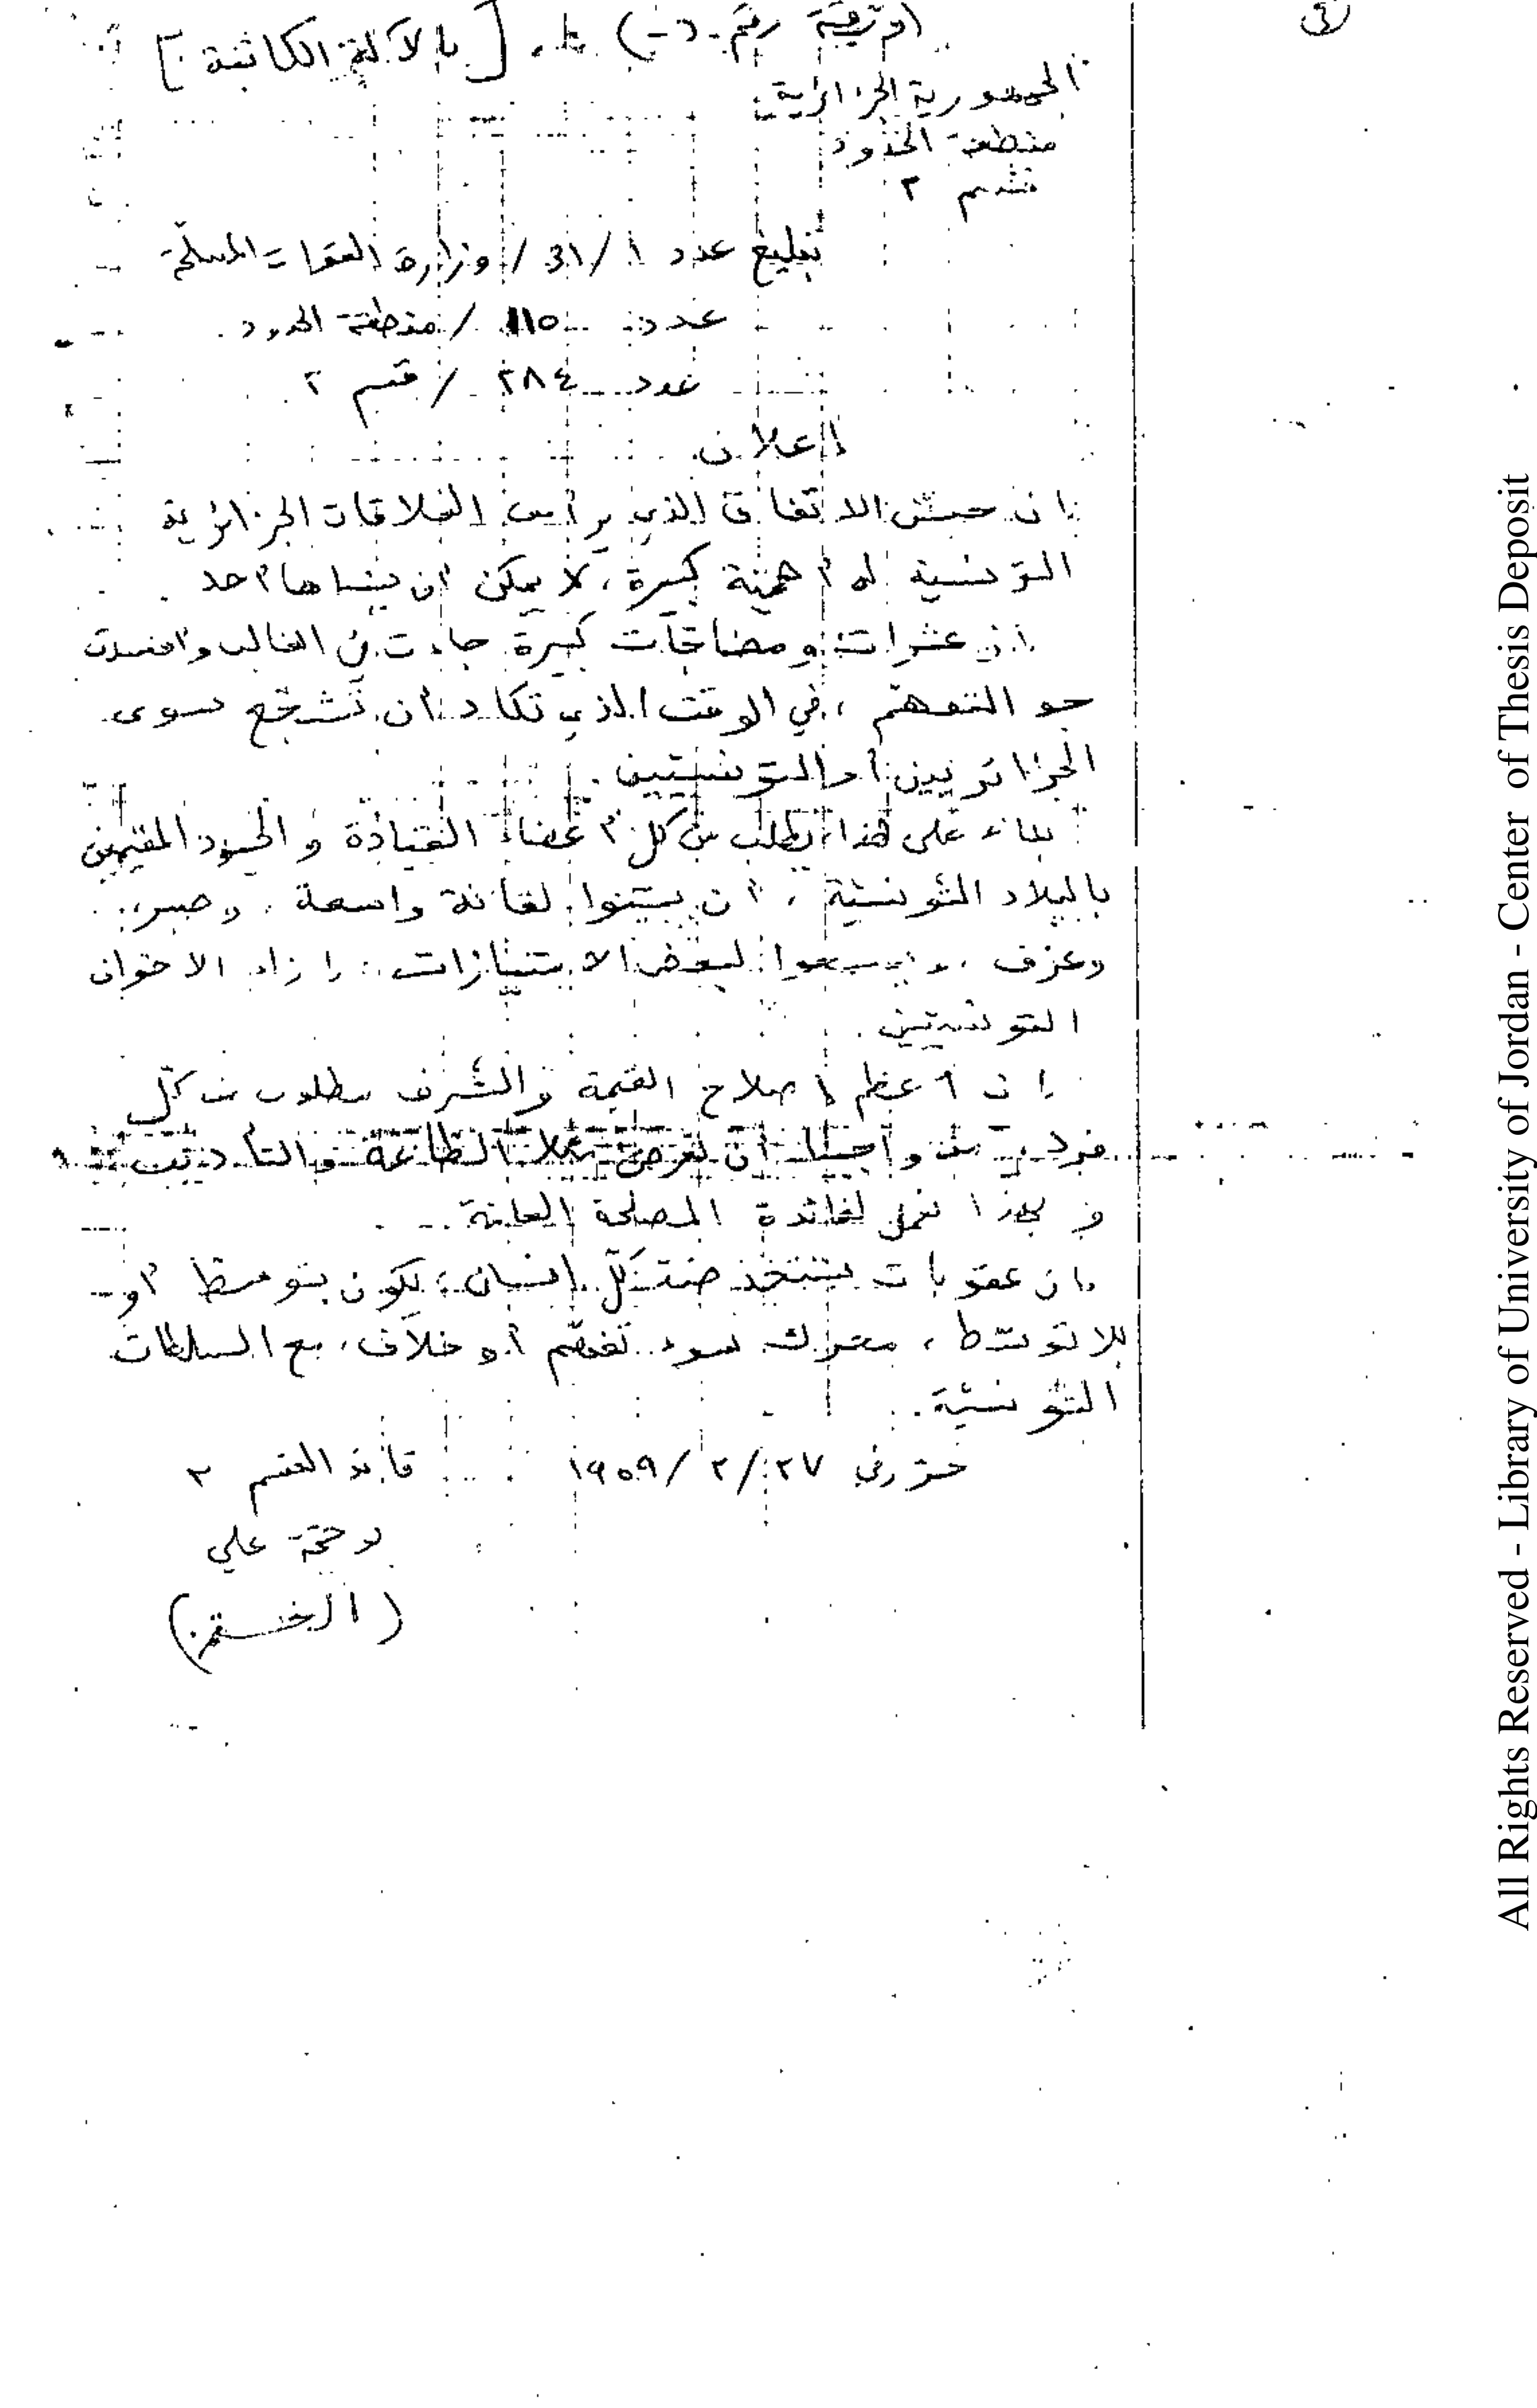 (وثيقة رقم -ت-) ط. [بالآلة الكاتبة]
الجمهورية الجزائرية
منطقة الحدود
قسم ٢
تبليغ عدد ١ / 31 / وزارة القوات المسلحة
عدد 110 / منطقة الحدود
عدد ٢٨٤ / قسم ٢
إعلان
إن حسن الاتفاق الذي يرأس العلاقات الجزائرية
التونسية له أهمية كبيرة، لا يمكن أن ينساها أحد
إن عثرات ومضايقات كثيرة جاءت في الغالب وأفسدت
جو التفهم، في الوقت الذي تكاد أن تشجع سوى
الجزائريين أو التونسيين.
بناء على هذا، يطلب من كل أعضاء القيادة والجنود المقيمين
بالبلاد التونسية، أن واسعة، وصبر،
لبعض الامتيازات، إزاء الاخوان
التونسيين.
إن أعظم إصلاح القيمة والشرف مطلوب من كل
فرد من واجبنا أن الطاعة والتأديب
و بهذا نعمل لفائدة المصلحة العامة.
إن عقوبات ستتخذ ضد كل إنسان، يكون بتوسط أو
بلا توسط، محرك سوء تفهم أو خلاف، مع السلطات
التونسية.
حرر في ٢٧ / ٢ / ١٩٥٩ قائد القسم ٢
علي
(الختم)
All Rights Reserved - Library of University of Jordan - Center of Thesis Deposit